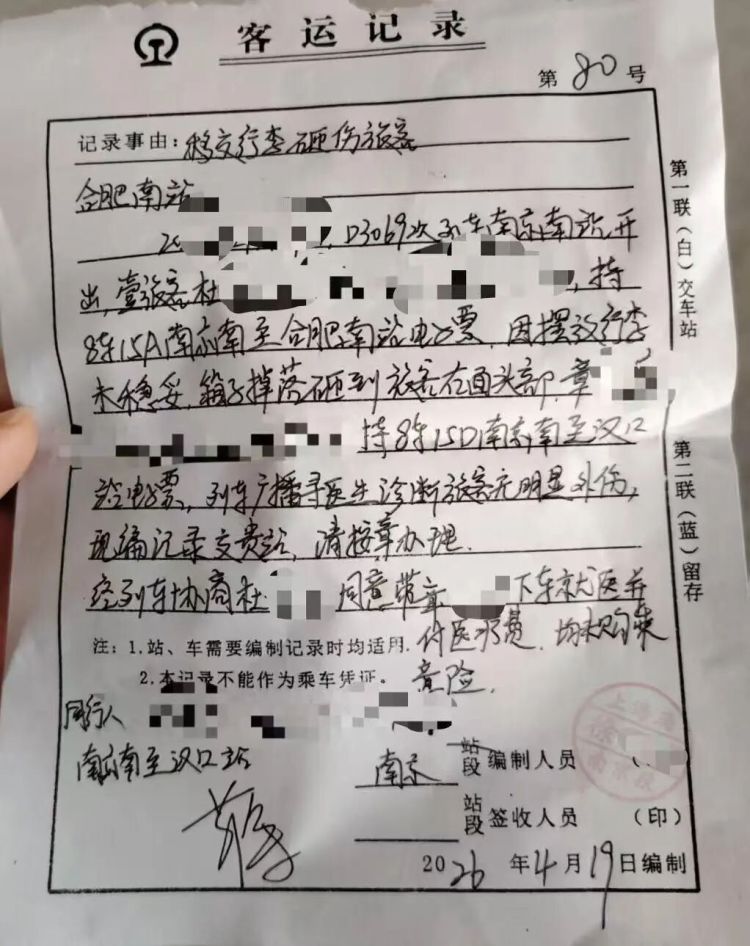 客运记录
第80号
记录事由：移交行李砸伤旅客
合肥南站
D3069次列车南京南站开
出，壹旅客杜 ，持
8车15A南京南至合肥南站电子票，因摆放行李
未稳妥，箱子掉落砸到旅客右面头部，章
持8车15D南京南至汉口
站电子票，列车广播寻医生诊断旅客无明显外伤，
现编记录交贵站，请按章办理.
经列车协商杜 同意带章 下车就医并
付医疗费，均未购乘
意险.
注：1.站、车需要编制记录时均适用.
2.本记录不能作为乘车凭证。
同行人
南京南至汉口站
南京 站段 编制人员
站段 签收人员 （印）
2026年4月19日编制
第一联（白）交车站
第二联（蓝）留存
上海 徐 南京段